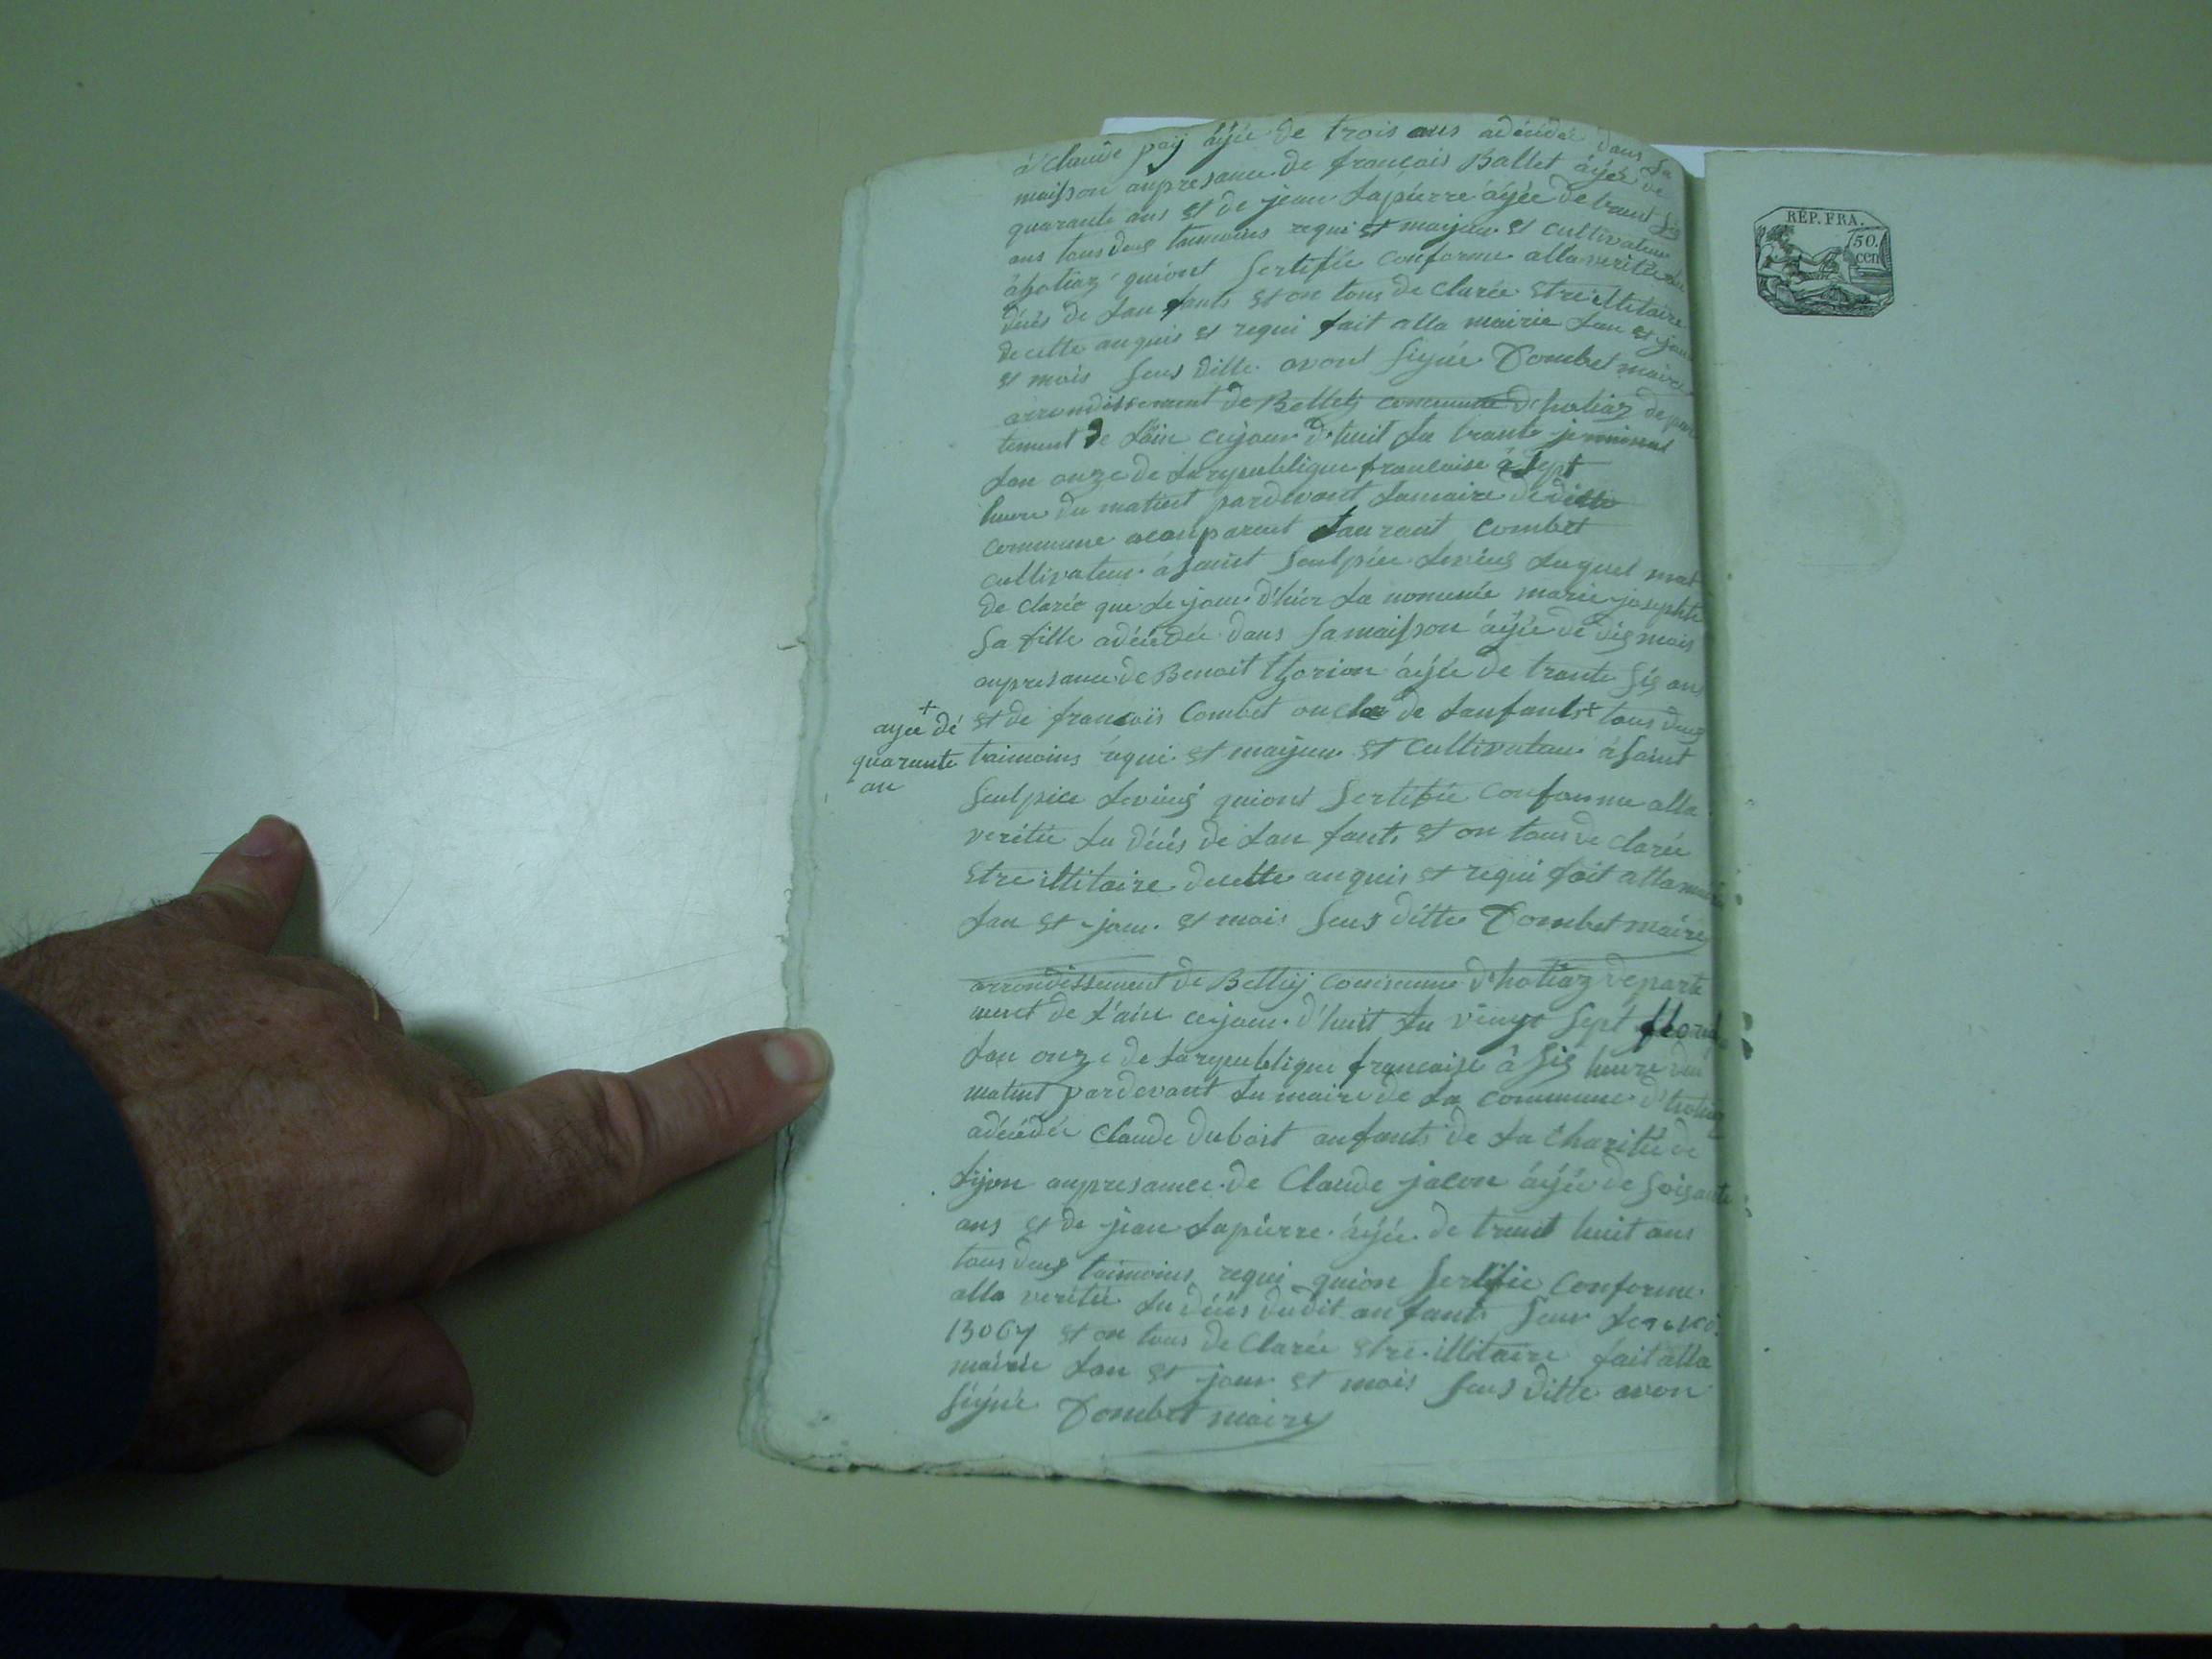 à Claude pay âyée de trois ans adécédée dans sa
maisson anpresance de francais Ballet âyée de
quarante ans et de jean Lapierre âyée de trant sis
ans tous deus taimoins requi et majeur et cultivateur
à hotiaz quiont sertifié conforme alla verité du
décés de Lan fants et on tous de clarée etre illitaire
de cette anquis et requi fait alla mairie Lan et jour
et mois sens ditte avont signée Combet maire
arrondissement de Belley commune d'hotiaz depar
tement de Lain cejour d'huit Le trante jerminal
Lan onze de La republique francaise à sept
heure du matint pardevant Lamaire de ditte
commune aconparent Laurant Combet
cultivateur à saint Soulpice Levieus Lequel mat
de clarée que Le jour d'hier La nommée marie josephte
sa fille adécédée dans samaisson âyée de dis mois
anpresance de Benoit thorion âyée de trante sis ans
et de francois Combet oncle de Lanfants + tous deus
+
ayée dé
quarante
an
taimoins requi et majeur et cultivateur à saint
Soulpice Levieus quiont sertifié conforme alla
verité Le décés de Lan fants et on tous de clarée
etre illitaire decette anquis et requi fait alla mairie
Lan et jour et mois sens ditte Combet maire
arrondissement de Belley commune d'hotiaz departe
ment de L'ain cejour d'huit Le vingt sept floreal
Lan onze de La republique francaise à sis heure du
matint pardevant Le maire de La commune d'hotiaz
adécédée Claude Duboit anfants de La Charité de
Lyon anpresance de Claude jacon âyée de soisante
ans et de jean Lapierre âyée de trant huit ans
tous deus taimoins requi quion sertifié conforme
alla verité Le décés dudit anfants sour Le
13067 et on tous de Clarée etre illitaire fait alla
mairie Lan et jour et mois sens ditte avon
signée Combet maire
RÉP. FRA.
50.
cen